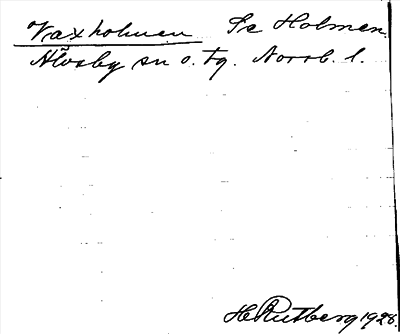 Vaxholmen Se Holmen.
Älvsby sn o. tg. Norrb. l.
H. Rutberg 1928.